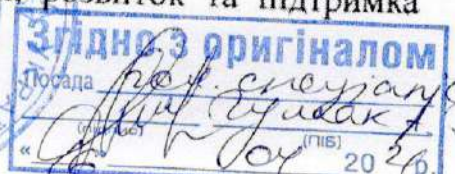 розвиток та підтримка
Згідно з оригіналом
Посада гол. спеціаліст
Гулак А
(підпис) (ПІБ)
« » 04 20 р.